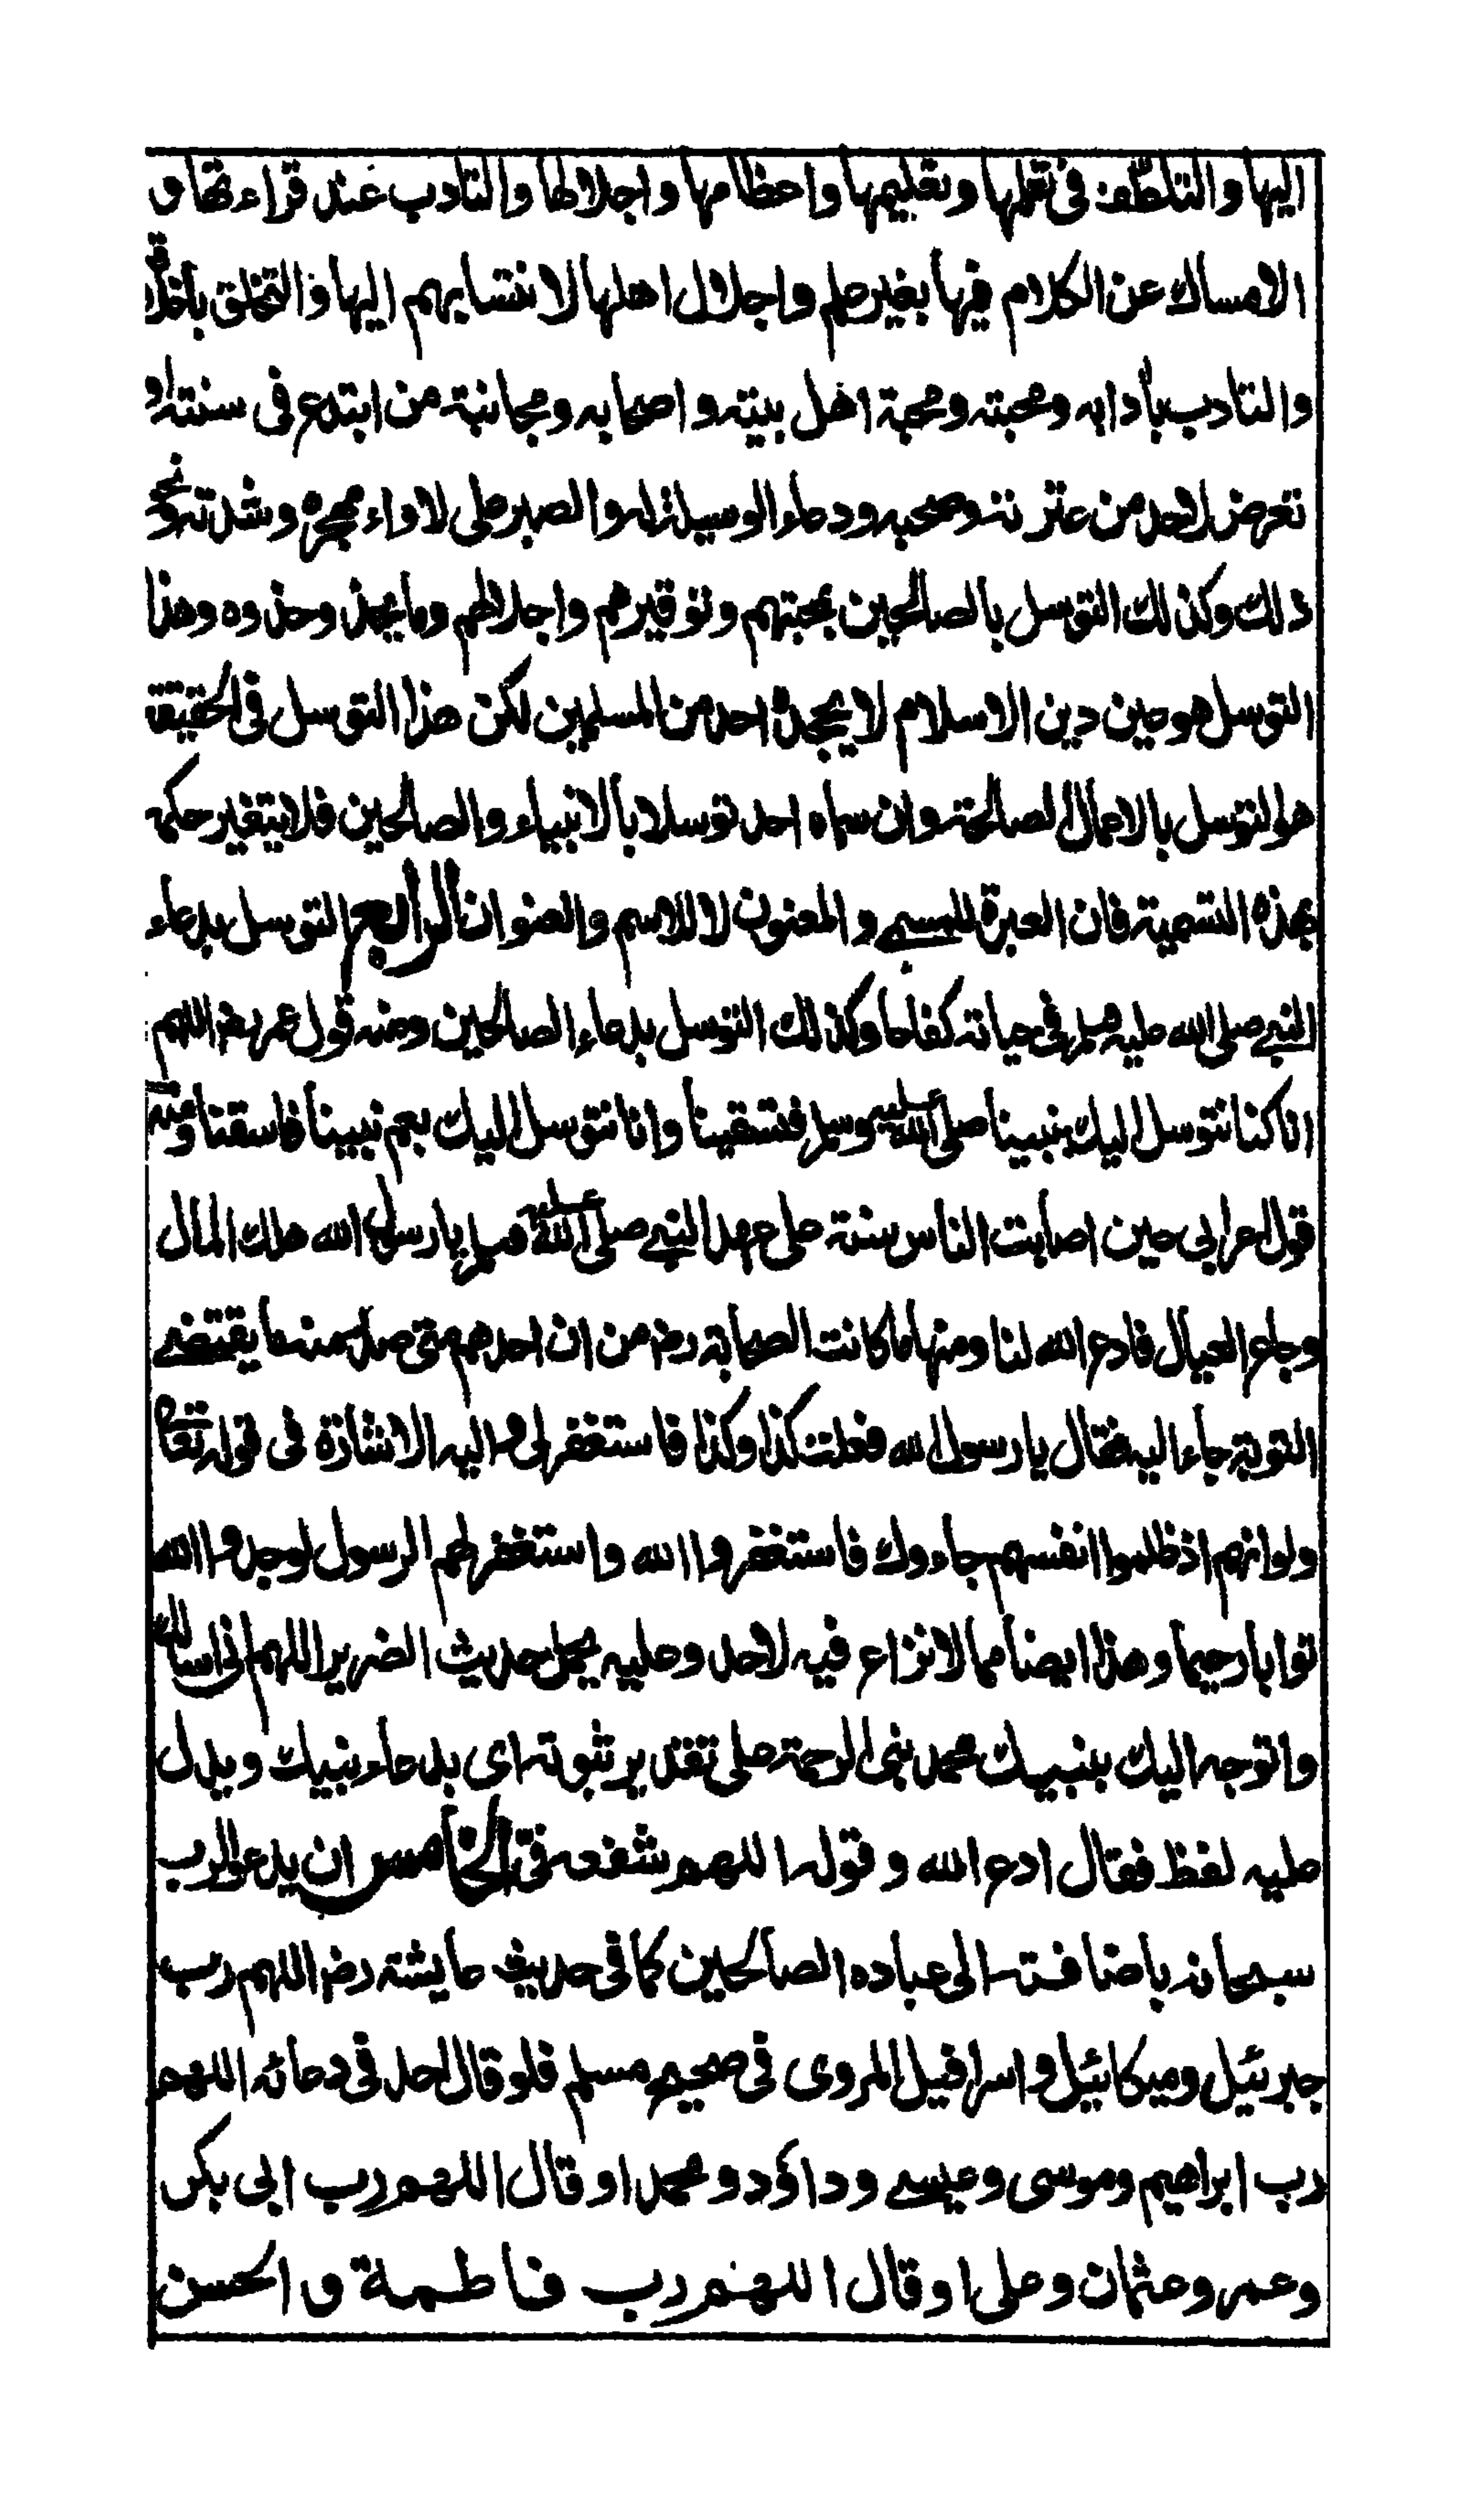 اليها والتلطف فى تعلمها وتعليمها واعظامها واجلالها والتادب عند قراءتها و
الامساك عن الكلام فيها بغير علم واجلال اهلها لانتسابهم اليها والتخلق باخلاقه
والتادب بأدابه ومحبته ومحبة اهل بيته واصحابه ومجانبة من ابتدع فى سنته او
تعرض لاحد من عترته وصحبه ودعاء الوسيلة له والصبر على لاواء مهجره وشدته ونحو
ذلك وكذلك التوسل بالصالحين بمحبتهم وتوقيرهم واجلالهم وما يحذ وحذوه وهذا
التوسل هو عين دين الاسلام لا يجحده احد من المسلمين لكن هذا التوسل فى الحقيقة
هو التوسل بالاعمال الصالحة وان سماه احد توسلا بالانبياء والصالحين فلا يتغير حكمه
بهذه التسمية فان العبرة للمسمى والمعنون لا للاسم والعنوان الرابع التوسل بدعاء
النبى صلى الله عليه وسلم فى حياته كفاحا وكذلك التوسل بدعاء الصالحين ومنه قول عمر رض اللهم
انا كنا نتوسل اليك بنبينا صلى الله عليه وسلم فتسقينا وانا نتوسل اليك بعم نبينا فاسقنا ومنه
قول اعرابى حين اصابت الناس سنة على عهد النبى صلى الله عليه وسلم يا رسول الله هلك المال
وجاع العيال فادع الله لنا ومنها ما كانت الصحابة رض من ان احدهم متى صدر منه ما يقتضى
التوبة جاء اليه فقال يا رسول الله فعلت كذا وكذا فاستغفر لى واليه الاشارة فى قوله تعالى
ولو انهم اذ ظلموا انفسهم جاءوك فاستغفروا الله واستغفر لهم الرسول لوجدوا الله
توابا رحيما وهذا ايضا مما لا نزاع فيه لاحد وعليه يحمل حديث الضرير اللهم انى اسألك
واتوجه اليك بنبيك محمد نبى الرحمة على تقدير ثبوته اى بدعاء نبيك ويدل
عليه لفظ فقال ادع الله وقوله اللهم شفعه فى الخامس ان يدعو الرب
سبحانه باضافته الى عباده الصالحين كما فى حديث عايشة رض اللهم رب
جبرئيل وميكائيل واسرافيل المروى فى صحيح مسلم فلو قال احد فى دعائه اللهم
رب ابراهيم وموسى وعيسى وداؤد ومحمد او قال اللهم رب ابى بكر
وعمر وعثمان وعلى او قال اللهم رب فاطمة و الحسن